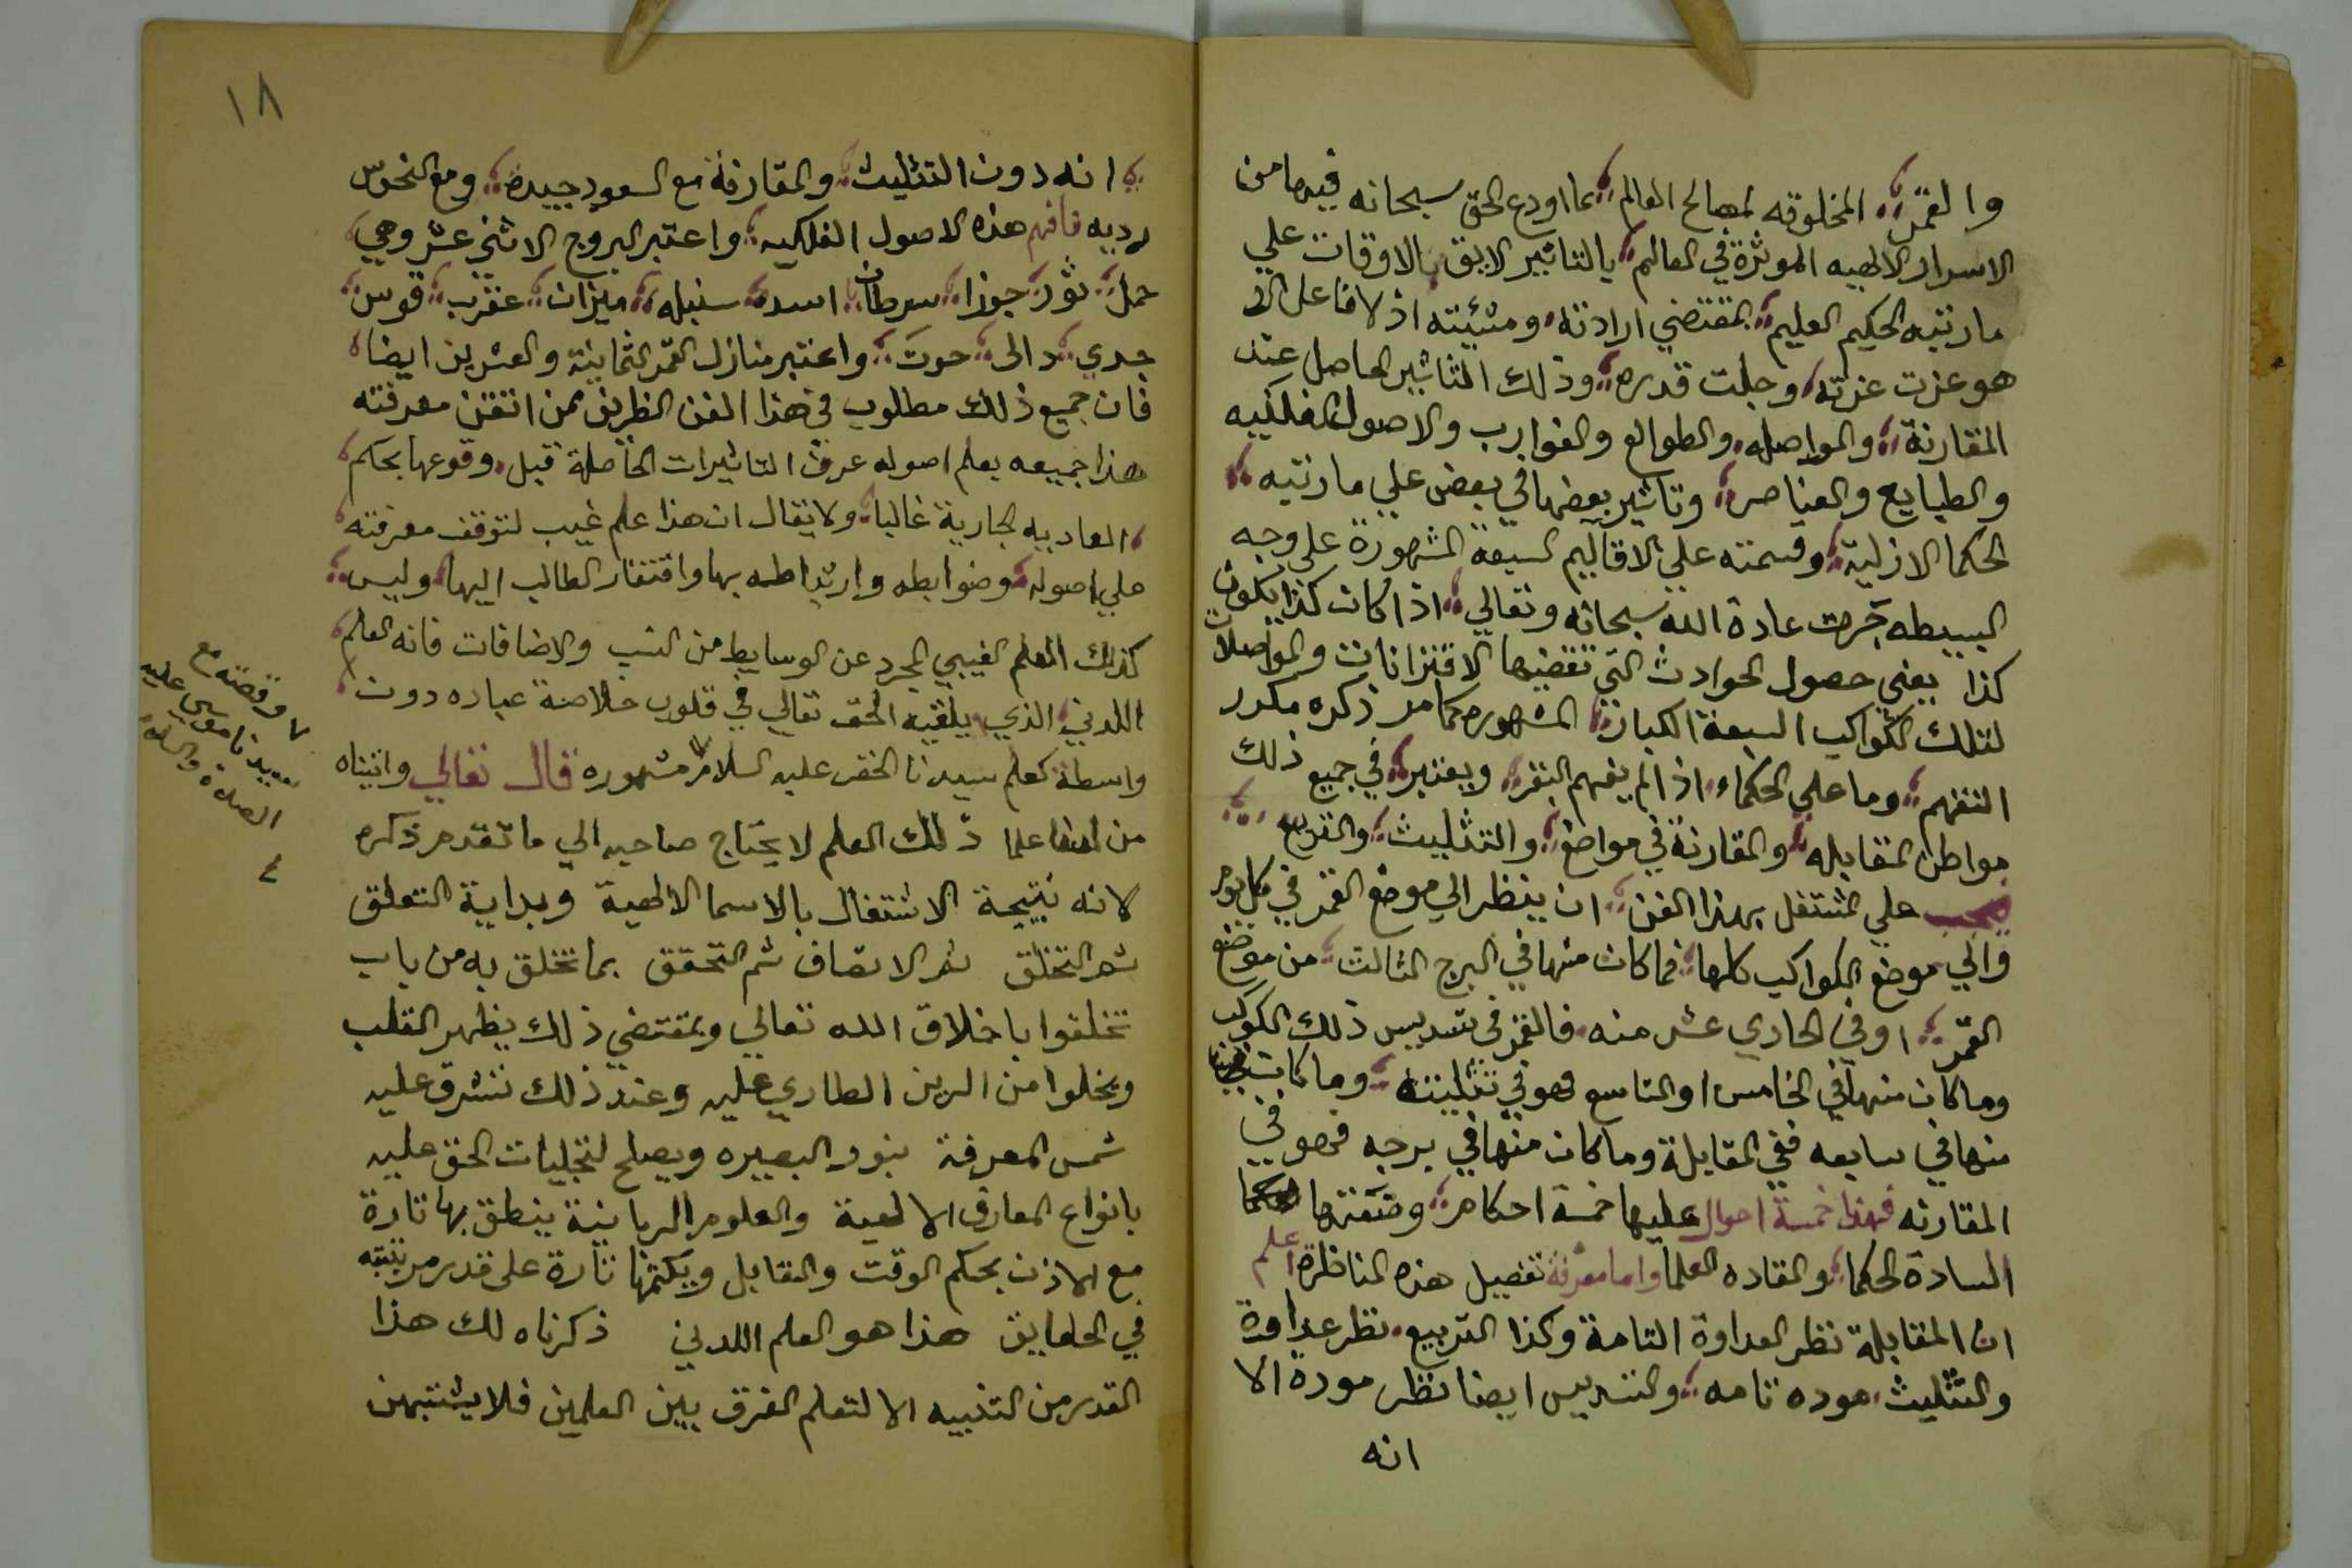 والقمر المخلوقه لمصالح العالم بما اودع الحق سبحانه فيها من
الاسرار الالهيه الموثرة في العالم بالتاثير الايق بالاوقات علي
ما رتبه الحكيم العليم بمقتضي ارادته ومشيئته اذ لا فاعل الا
هو عزت عزته وجلت قدره وذلك التاثير الحاصل عند
المقارنة والمواصله والطوالع والغوارب والاصول الفلكيه
والطبايع والعناصر وتاثير بعضها في بعض علي ما رتبه
الحكما الازلية وقسمته علي الاقاليم السبعة المشهورة علي وجه
البسيطه جرت عادة الله سبحانه وتعالي اذا كان كذا يكون
كذا يعني حصول الحوادث التي تقضيها الاقترانات والمواصلات
لتلك الكواكب السبعة الكبار المشهوره كما مر ذكره مكرر
التفهم وما علي الحكماء اذا لم يفهم البقر ويعتبر في جميع ذلك
مواطن المقابله والمقارنة في مواضع والتثليث والتربيع
فيجب علي المشتغل بهذا الفن ان ينظر الي موضع القمر في كل يوم
والي موضع الكواكب كلها فما كان منها في البرج الثالث من موضع
القمر اوفي الحادي عشر منه فالقمر في تسديس ذلك الكوكب
وما كان منها في الخامس او التاسع فهو في تثليثه وما كان
منها في سابعه ففي المقابلة وما كان منها في برجه فهو في
المقارنه فهذا خمسة احوال عليها خمسة احكام
السادة الحكما والقاده العلما واما معرفة تفصيل هذه المناظرة اعلم
ان المقابلة نظر العداوة التامة وكذا التربيع نظر عداوة
والتثليث موده تامه والتسديس ايضا نظر مودة الا
انه
١٨
انه دون التثليث والمقارنة مع السعود جيدة ومع النحوس
رديه فافهم هذه الاصول الفلكيه واعتبر البروج الاثني عشر وهي
حمل ثور جوزا سرطان اسد سنبله ميزان عقرب قوس
جدي دالى حوت واعتبر منازل القمر الثمانية والعشرين ايضا
فان جميع ذلك مطلوب في هذا الفن الظريف فمن اتقن معرفته
هذا جميعه بعلم اصوله عرف التاثيرات الحاصلة قبل وقوعها بحكم
العاديه الجارية غالبا ولا يقال ان هذا علم غيب لتوقف معرفته
علي اصوله وضوابطه وارتباطه بها وافتقار الطالب اليها وليس
كذلك العلم الغيبي المجرد عن الوسايط من النسب والاضافات فانه العلم
اللدني الذي يلقيه الحق تعالي في قلوب خلاصة عباده دون
واسطة كعلم سيدنا الخضر عليه السلام مشهوره قال تعالي واتيناه
من لدنا علما ذلك العلم لا يحتاج صاحبه الي ما تقدم ذكره
لانه نتيجة الاشتغال بالاسما الالهية وبداية التعلق
ثم التخلق ثم الاتصاف ثم التحقق بما تخلق به من باب
تخلقوا باخلاق الله تعالي وبمقتضي ذلك يظهر القلب
ويخلوا من الرين الطاري عليه وعند ذلك تشرق عليه
شمس المعرفة بنور البصيره ويصلح لتجليات الحق عليه
بانواع المعارف الالهية والعلوم الربانية ينطق بها تارة
مع الاذن بحكم الوقت والقابل ويكتمها تارة علي قدر مرتبته
في الحقايق هذا هو العلم اللدني ذكرناه لك هذا
القدر من التنبيه الا لتعلم الفرق بين العلمين فلا يشتبهن
وقصته مع
سيدنا موسى عليه
الصلاة والسلام